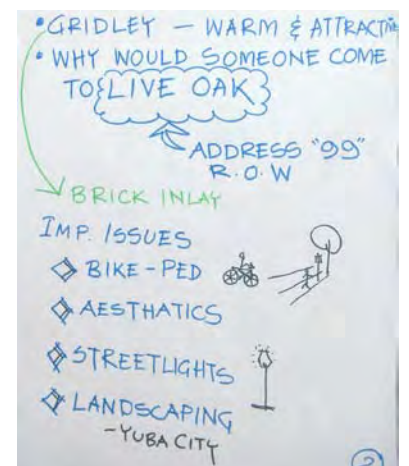 • GRIDLEY — WARM & ATTRACTIV
• WHY WOULD SOMEONE COME
TO LIVE OAK
ADDRESS "99"
R.O.W
BRICK INLAY
IMP. ISSUES
BIKE - PED
AESTHATICS
STREETLIGHTS
LANDSCAPING
- YUBA CITY
2